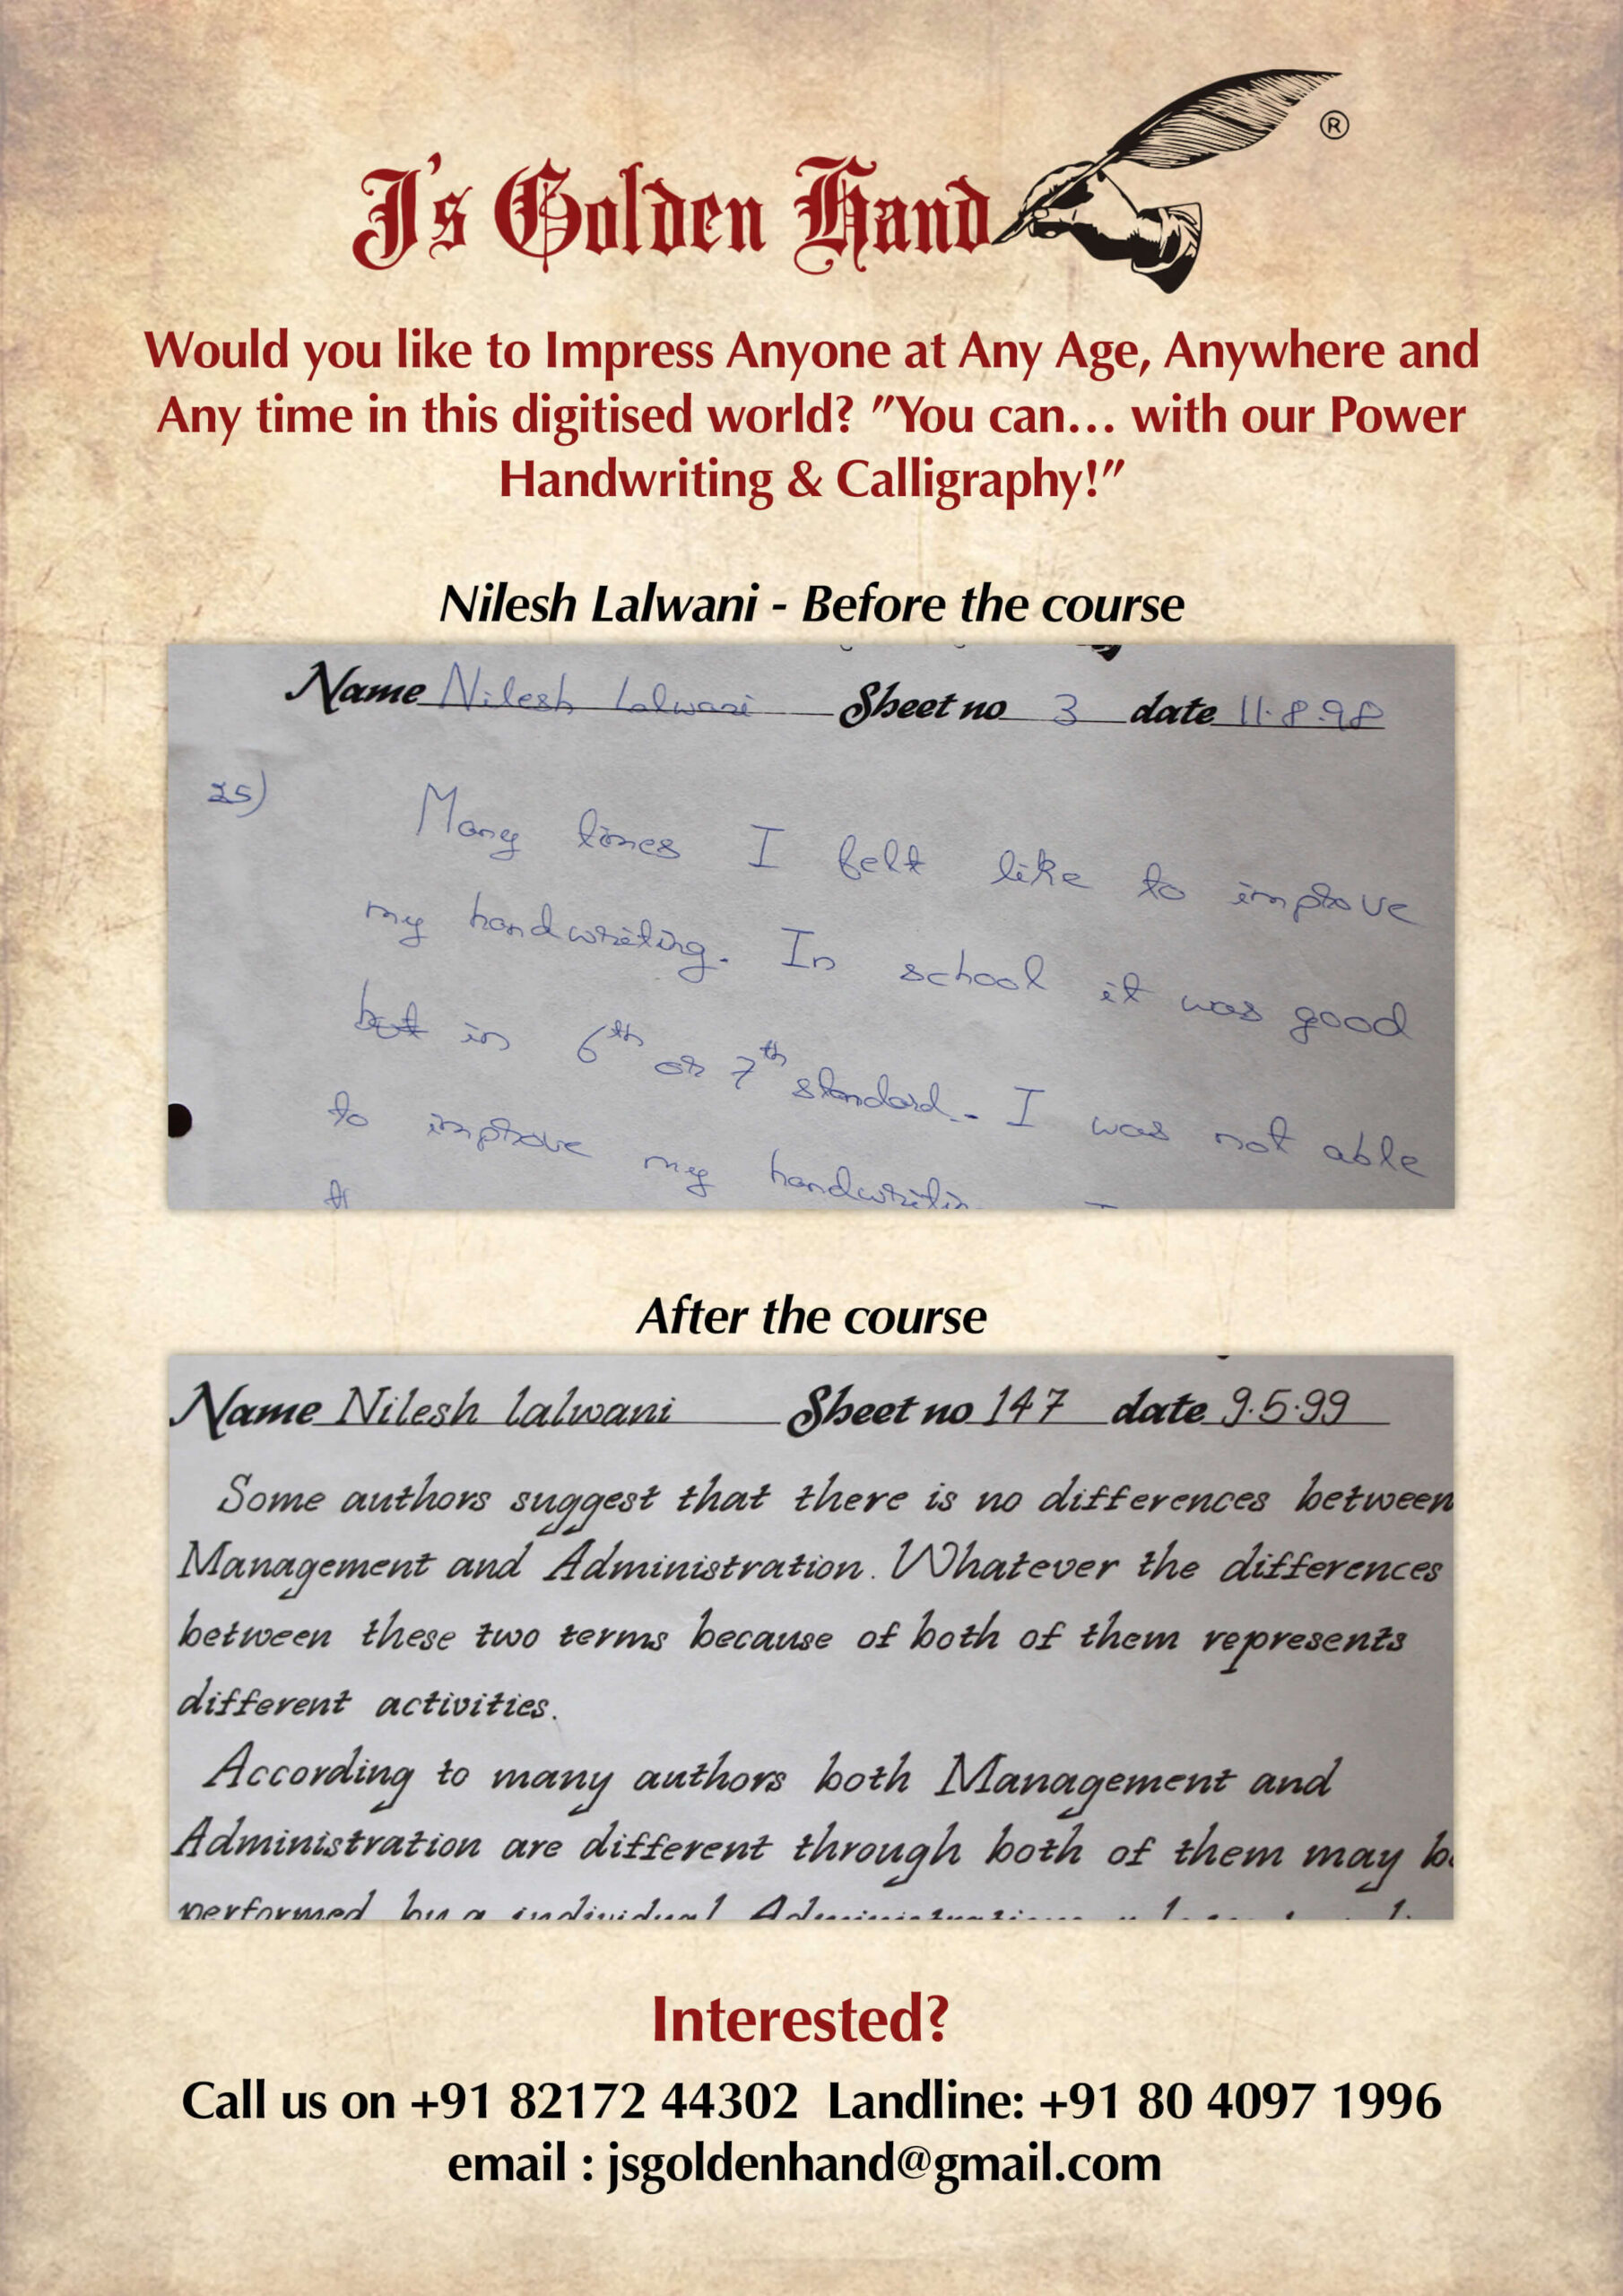 J's Golden Hand ®
Would you like to Impress Anyone at Any Age, Anywhere and
Any time in this digitised world? "You can... with our Power
Handwriting & Calligraphy!"
Nilesh Lalwani - Before the course
Name Nilesh Lalwani Sheet no 3 date 11.8.98
25)
Many times I felt like to improve
my handwriting. In school it was good
but in 6th or 7th standard. I was not able
to improve my handwritin
After the course
Name Nilesh lalwani Sheet no 147 date 9.5.99
Some authors suggest that there is no differences between
Management and Administration. Whatever the differences
between these two terms because of both of them represents
different activities.
According to many authors both Management and
Administration are different through both of them may b
performed by a individual Administration
Interested?
Call us on +91 82172 44302 Landline: +91 80 4097 1996
email : jsgoldenhand@gmail.com